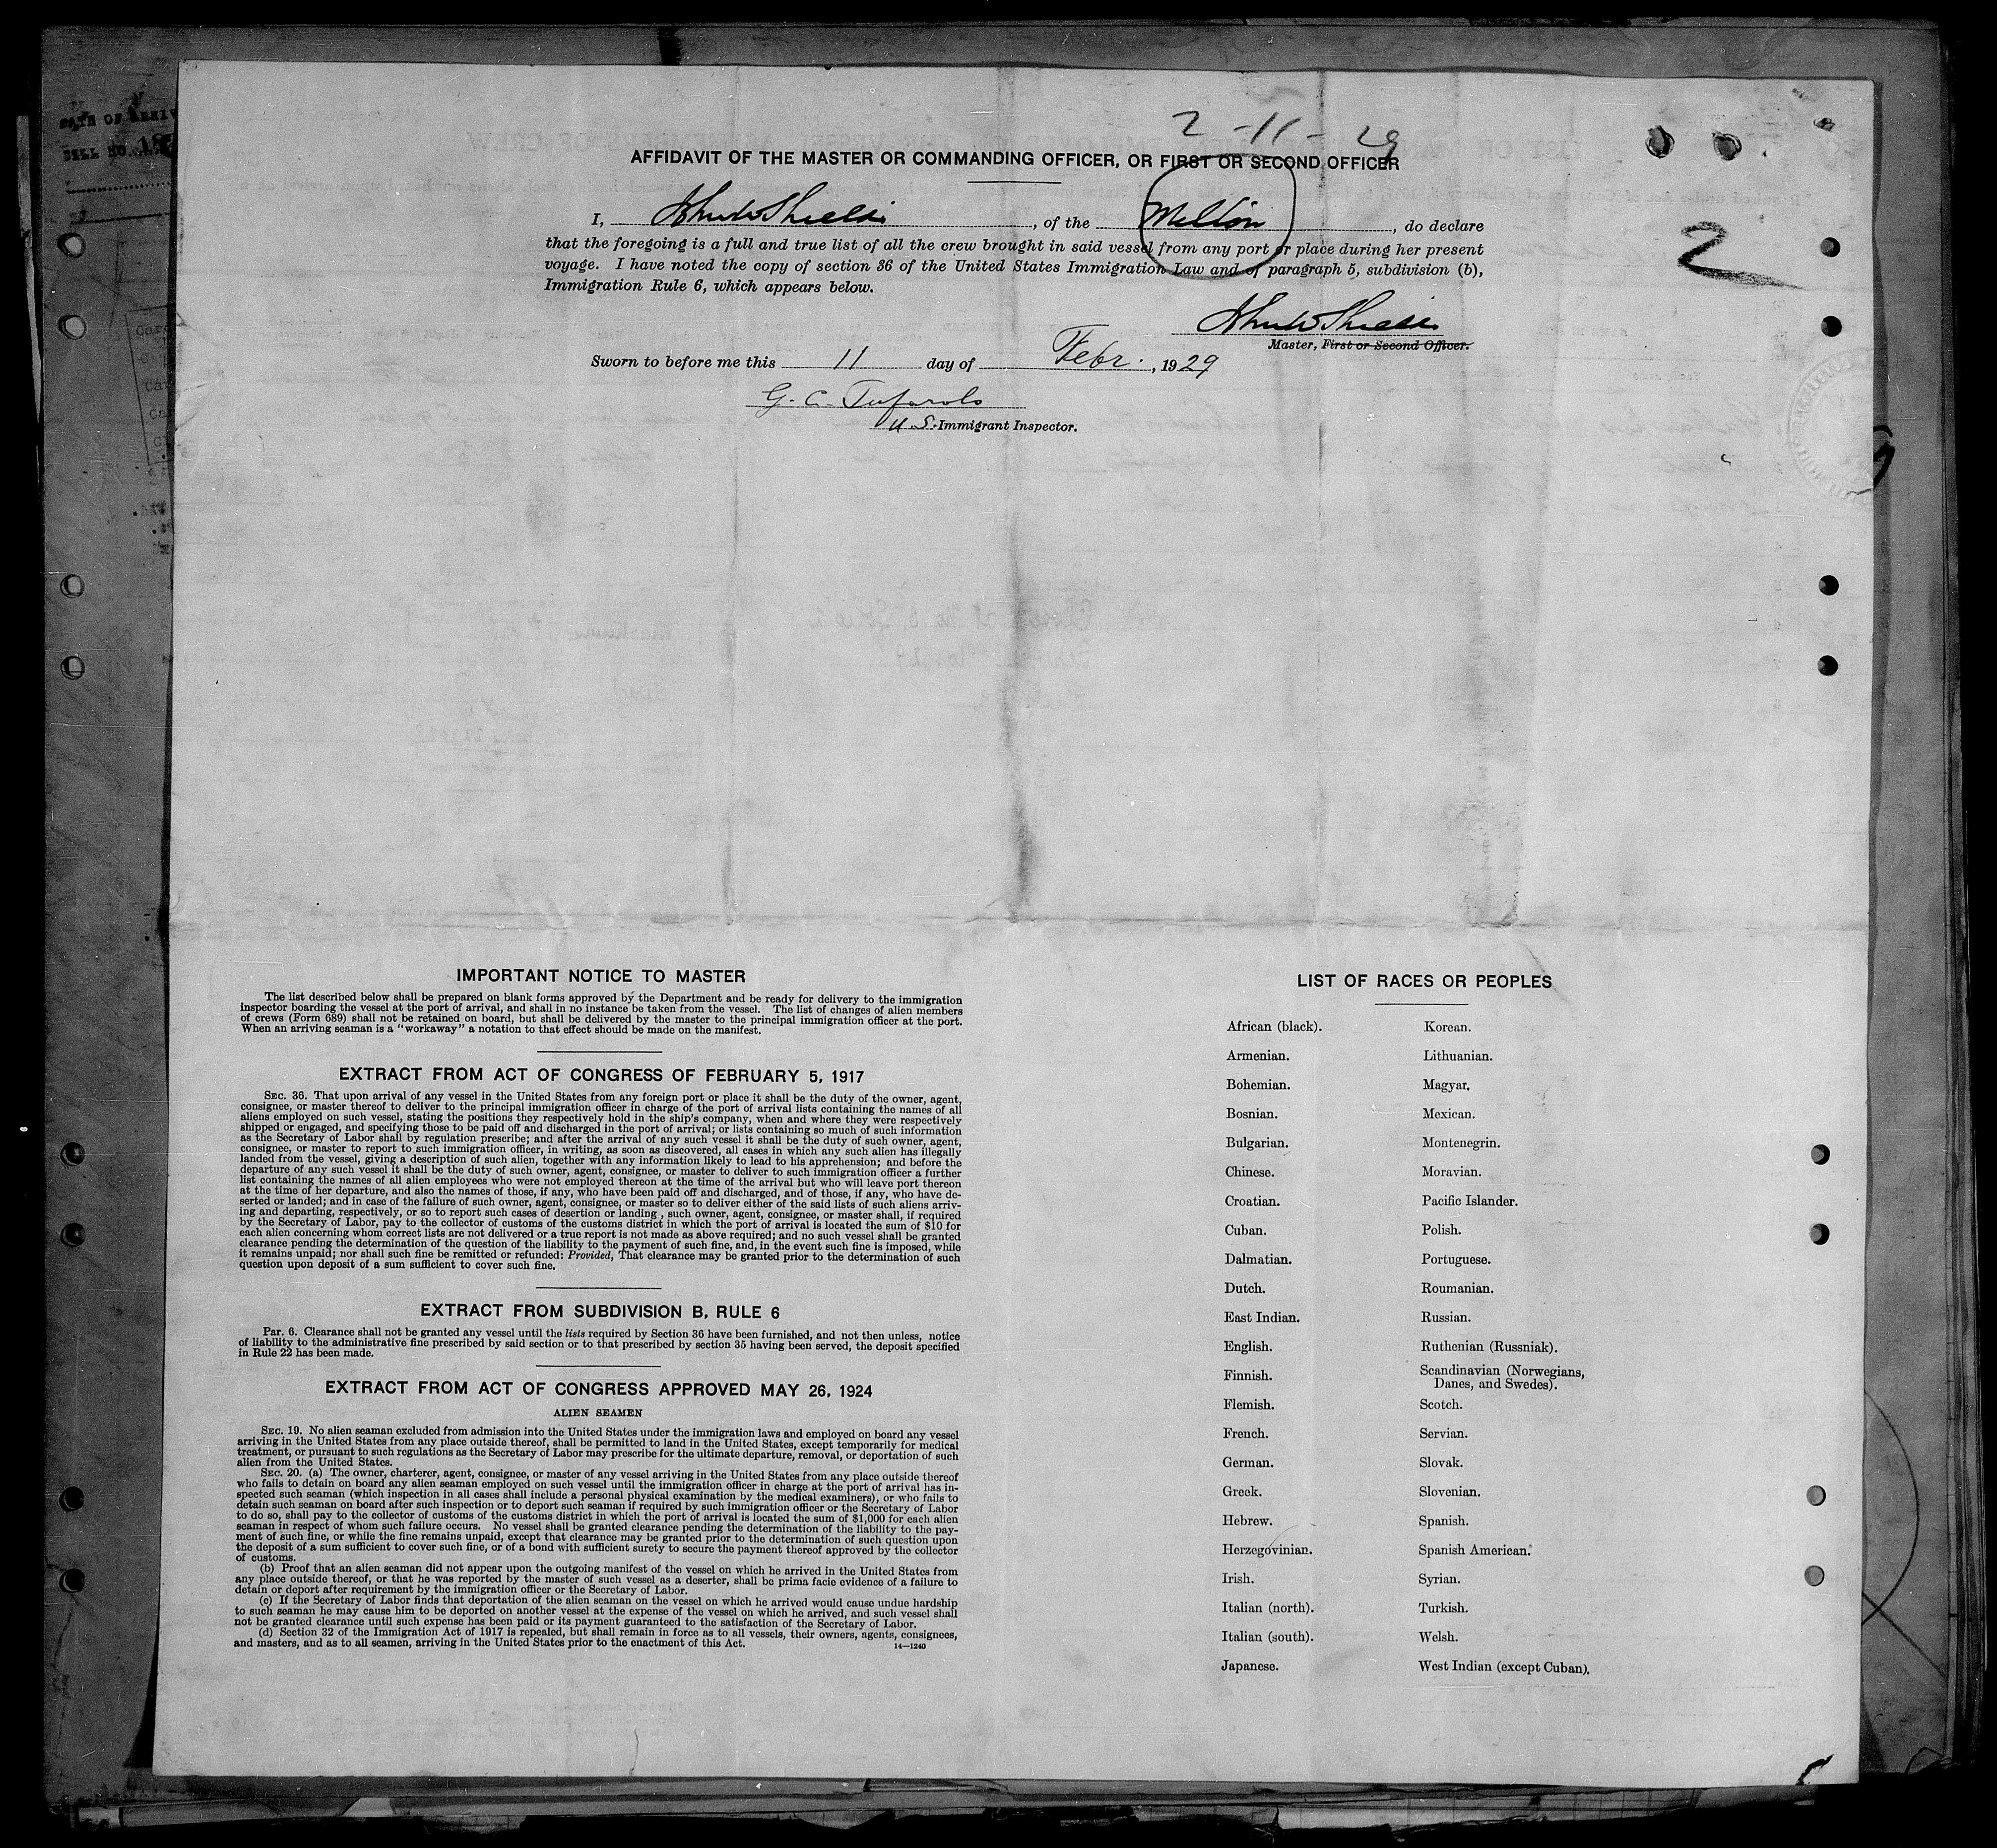 2-11-29
AFFIDAVIT OF THE MASTER OR COMMANDING OFFICER, OR FIRST OR SECOND OFFICER
2
I, John W Shields, of the Melton, do declare
that the foregoing is a full and true list of all the crew brought in said vessel from any port or place during her present
voyage. I have noted the copy of section 36 of the United States Immigration Law and of paragraph 5, subdivision (b),
Immigration Rule 6, which appears below.
John W Shields
Master, First or Second Officer.
Sworn to before me this 11 day of Febr., 1929
G. C. Tufarolo
U.S. Immigrant Inspector.
IMPORTANT NOTICE TO MASTER
The list described below shall be prepared on blank forms approved by the Department and be ready for delivery to the immigration
inspector boarding the vessel at the port of arrival, and shall in no instance be taken from the vessel. The list of changes of alien members
of crews (Form 689) shall not be retained on board, but shall be delivered by the master to the principal immigration officer at the port.
When an arriving seaman is a "workaway" a notation to that effect should be made on the manifest.
EXTRACT FROM ACT OF CONGRESS OF FEBRUARY 5, 1917
SEC. 36. That upon arrival of any vessel in the United States from any foreign port or place it shall be the duty of the owner, agent,
consignee, or master thereof to deliver to the principal immigration officer in charge of the port of arrival lists containing the names of all
aliens employed on such vessel, stating the positions they respectively hold in the ship's company, when and where they were respectively
shipped or engaged, and specifying those to be paid off and discharged in the port of arrival; or lists containing so much of such information
as the Secretary of Labor shall by regulation prescribe; and after the arrival of any such vessel it shall be the duty of such owner, agent,
consignee, or master to report to such immigration officer, in writing, as soon as discovered, all cases in which any such alien has illegally
landed from the vessel, giving a description of such alien, together with any information likely to lead to his apprehension; and before the
departure of any such vessel it shall be the duty of such owner, agent, consignee, or master to deliver to such immigration officer a further
list containing the names of all alien employees who were not employed thereon at the time of the arrival but who will leave port thereon
at the time of her departure, and also the names of those, if any, who have been paid off and discharged, and of those, if any, who have de-
serted or landed; and in case of the failure of such owner, agent, consignee, or master so to deliver either of the said lists of such aliens arriv-
ing and departing, respectively, or so to report such cases of desertion or landing, such owner, agent, consignee, or master shall, if required
by the Secretary of Labor, pay to the collector of customs of the customs district in which the port of arrival is located the sum of $10 for
each alien concerning whom correct lists are not delivered or a true report is not made as above required; and no such vessel shall be granted
clearance pending the determination of the question of the liability to the payment of such fine, and, in the event such fine is imposed, while
it remains unpaid; nor shall such fine be remitted or refunded: Provided, That clearance may be granted prior to the determination of such
question upon deposit of a sum sufficient to cover such fine.
EXTRACT FROM SUBDIVISION B, RULE 6
Par. 6. Clearance shall not be granted any vessel until the lists required by Section 36 have been furnished, and not then unless, notice
of liability to the administrative fine prescribed by said section or to that prescribed by section 35 having been served, the deposit specified
in Rule 22 has been made.
EXTRACT FROM ACT OF CONGRESS APPROVED MAY 26, 1924
ALIEN SEAMEN
SEC. 19. No alien seaman excluded from admission into the United States under the immigration laws and employed on board any vessel
arriving in the United States from any place outside thereof, shall be permitted to land in the United States, except temporarily for medical
treatment, or pursuant to such regulations as the Secretary of Labor may prescribe for the ultimate departure, removal, or deportation of such
alien from the United States.
SEC. 20. (a) The owner, charterer, agent, consignee, or master of any vessel arriving in the United States from any place outside thereof
who fails to detain on board any alien seaman employed on such vessel until the immigration officer in charge at the port of arrival has in-
spected such seaman (which inspection in all cases shall include a personal physical examination by the medical examiners), or who fails to
detain such seaman on board after such inspection or to deport such seaman if required by such immigration officer or the Secretary of Labor
to do so, shall pay to the collector of customs of the customs district in which the port of arrival is located the sum of $1,000 for each alien
seaman in respect of whom such failure occurs. No vessel shall be granted clearance pending the determination of the liability to the pay-
ment of such fine, or while the fine remains unpaid, except that clearance may be granted prior to the determination of such question upon
the deposit of a sum sufficient to cover such fine, or of a bond with sufficient surety to secure the payment thereof approved by the collector
of customs.
(b) Proof that an alien seaman did not appear upon the outgoing manifest of the vessel on which he arrived in the United States from
any place outside thereof, or that he was reported by the master of such vessel as a deserter, shall be prima facie evidence of a failure to
detain or deport after requirement by the immigration officer or the Secretary of Labor.
(c) If the Secretary of Labor finds that deportation of the alien seaman on the vessel on which he arrived would cause undue hardship
to such seaman he may cause him to be deported on another vessel at the expense of the vessel on which he arrived, and such vessel shall
not be granted clearance until such expense has been paid or its payment guaranteed to the satisfaction of the Secretary of Labor.
(d) Section 32 of the Immigration Act of 1917 is repealed, but shall remain in force as to all vessels, their owners, agents, consignees,
and masters, and as to all seamen, arriving in the United States prior to the enactment of this Act.
14—1240
LIST OF RACES OR PEOPLES
African (black).
Armenian.
Bohemian.
Bosnian.
Bulgarian.
Chinese.
Croatian.
Cuban.
Dalmatian.
Dutch.
East Indian.
English.
Finnish.
Flemish.
French.
German.
Greek.
Hebrew.
Herzegovinian.
Irish.
Italian (north).
Italian (south).
Japanese.
Korean.
Lithuanian.
Magyar.
Mexican.
Montenegrin.
Moravian.
Pacific Islander.
Polish.
Portuguese.
Roumanian.
Russian.
Ruthenian (Russniak).
Scandinavian (Norwegians,
Danes, and Swedes).
Scotch.
Servian.
Slovak.
Slovenian.
Spanish.
Spanish American.
Syrian.
Turkish.
Welsh.
West Indian (except Cuban).